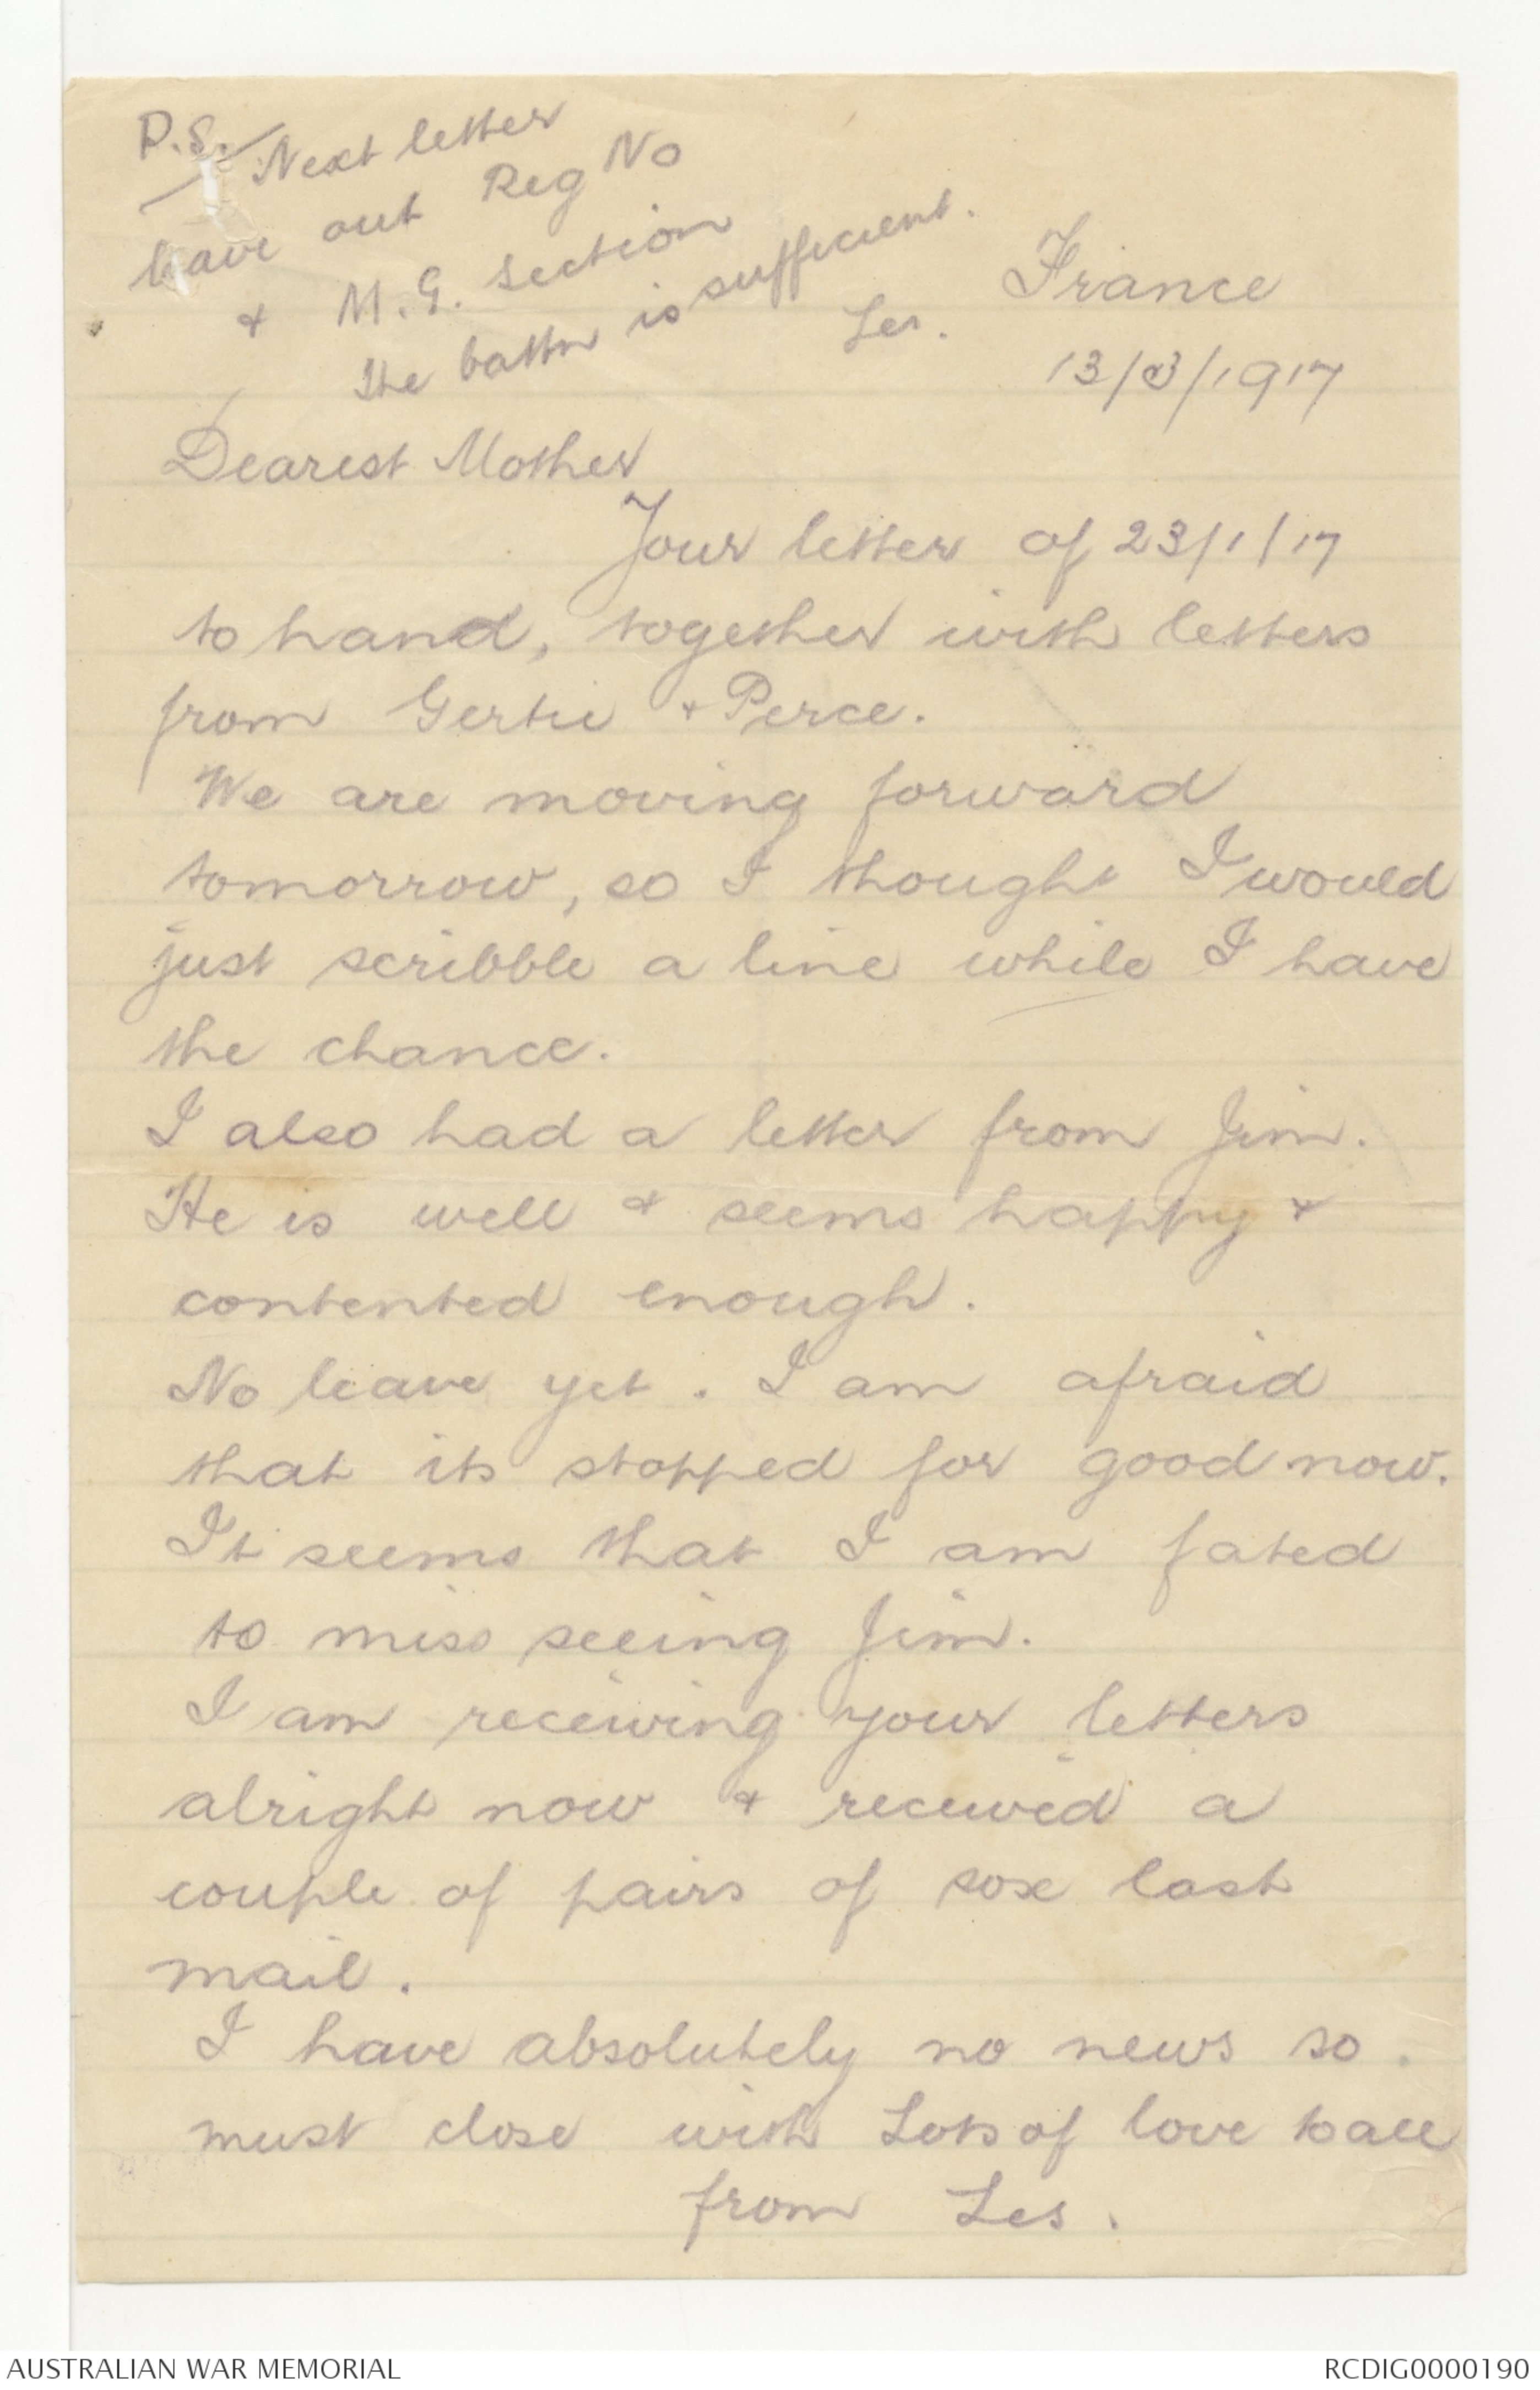 P.S. Next letter
leave out Reg No
& M.G. Section
The battn is sufficient.
Les.
France
13/3/1917
Dearest Mother
Your letter of 23/1/17
to hand, together with letters
from Gertie & Perce.
We are moving forward
tomorrow, so I thought I would
just scribble a line while I have
the chance.
I also had a letter from Jim.
He is well & seems happy &
contented enough.
No leave yet. I am afraid
that its stopped for good now.
It seems that I am fated
to miss seeing Jim.
I am receiving your letters
alright now & received a
couple of pairs of sox last
mail.
I have absolutely no news so.
must close with Lots of love to all
from Les.
AUSTRALIAN WAR MEMORIAL
RCDIG0000190